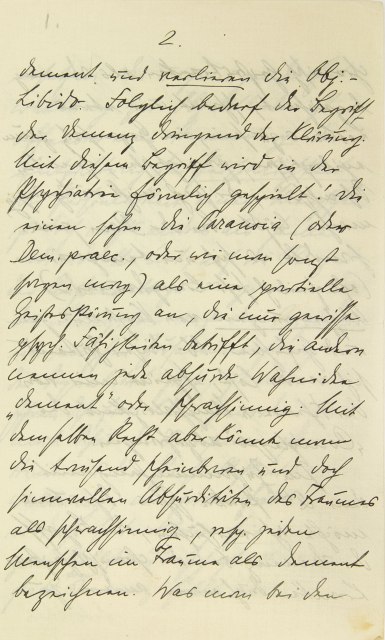 1.
2.
dement und verlieren die Obj.-
Libido. Folglich bedarf der Begriff
der Demenz dringend der Klärung.
Mit diesem Begriff wird in der
Psychiatrie förmlich gespielt! Die
einen sehen die Paranoia (oder
Dem. praec., oder wie man sonst
sagen mag) als eine partielle
Geistesstörung an, die nur gewisse
psych. Fähigkeiten betrifft, die andern
nennen jede absurde Wahnidee
„dement" oder schwachsinnig. Mit
demselben Recht aber könnte man
die tausend scheinbaren und doch
sinnvollen Absurditäten des Traumes
als schwachsinnig, resp. jeden
Menschen im Traume als dement
bezeichnen. Was man bei den